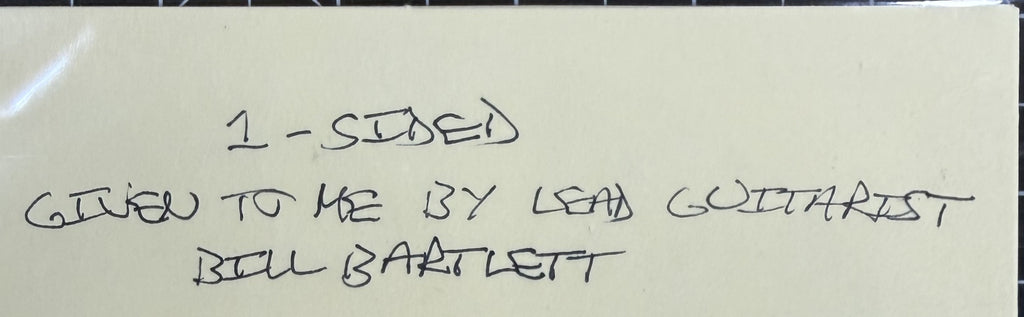 1-SIDED
GIVEN TO ME BY LEAD GUITARIST
BILL BARTLETT